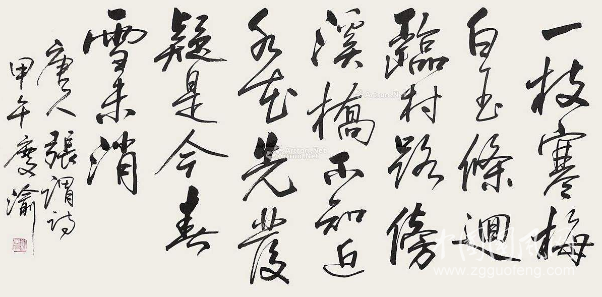 一枝寒梅
白玉條迥
臨村路傍
溪橋不知近
水花先發
疑是今春
雪未消
唐人張謂詩
甲午慶渝
www.zgguofeng.com